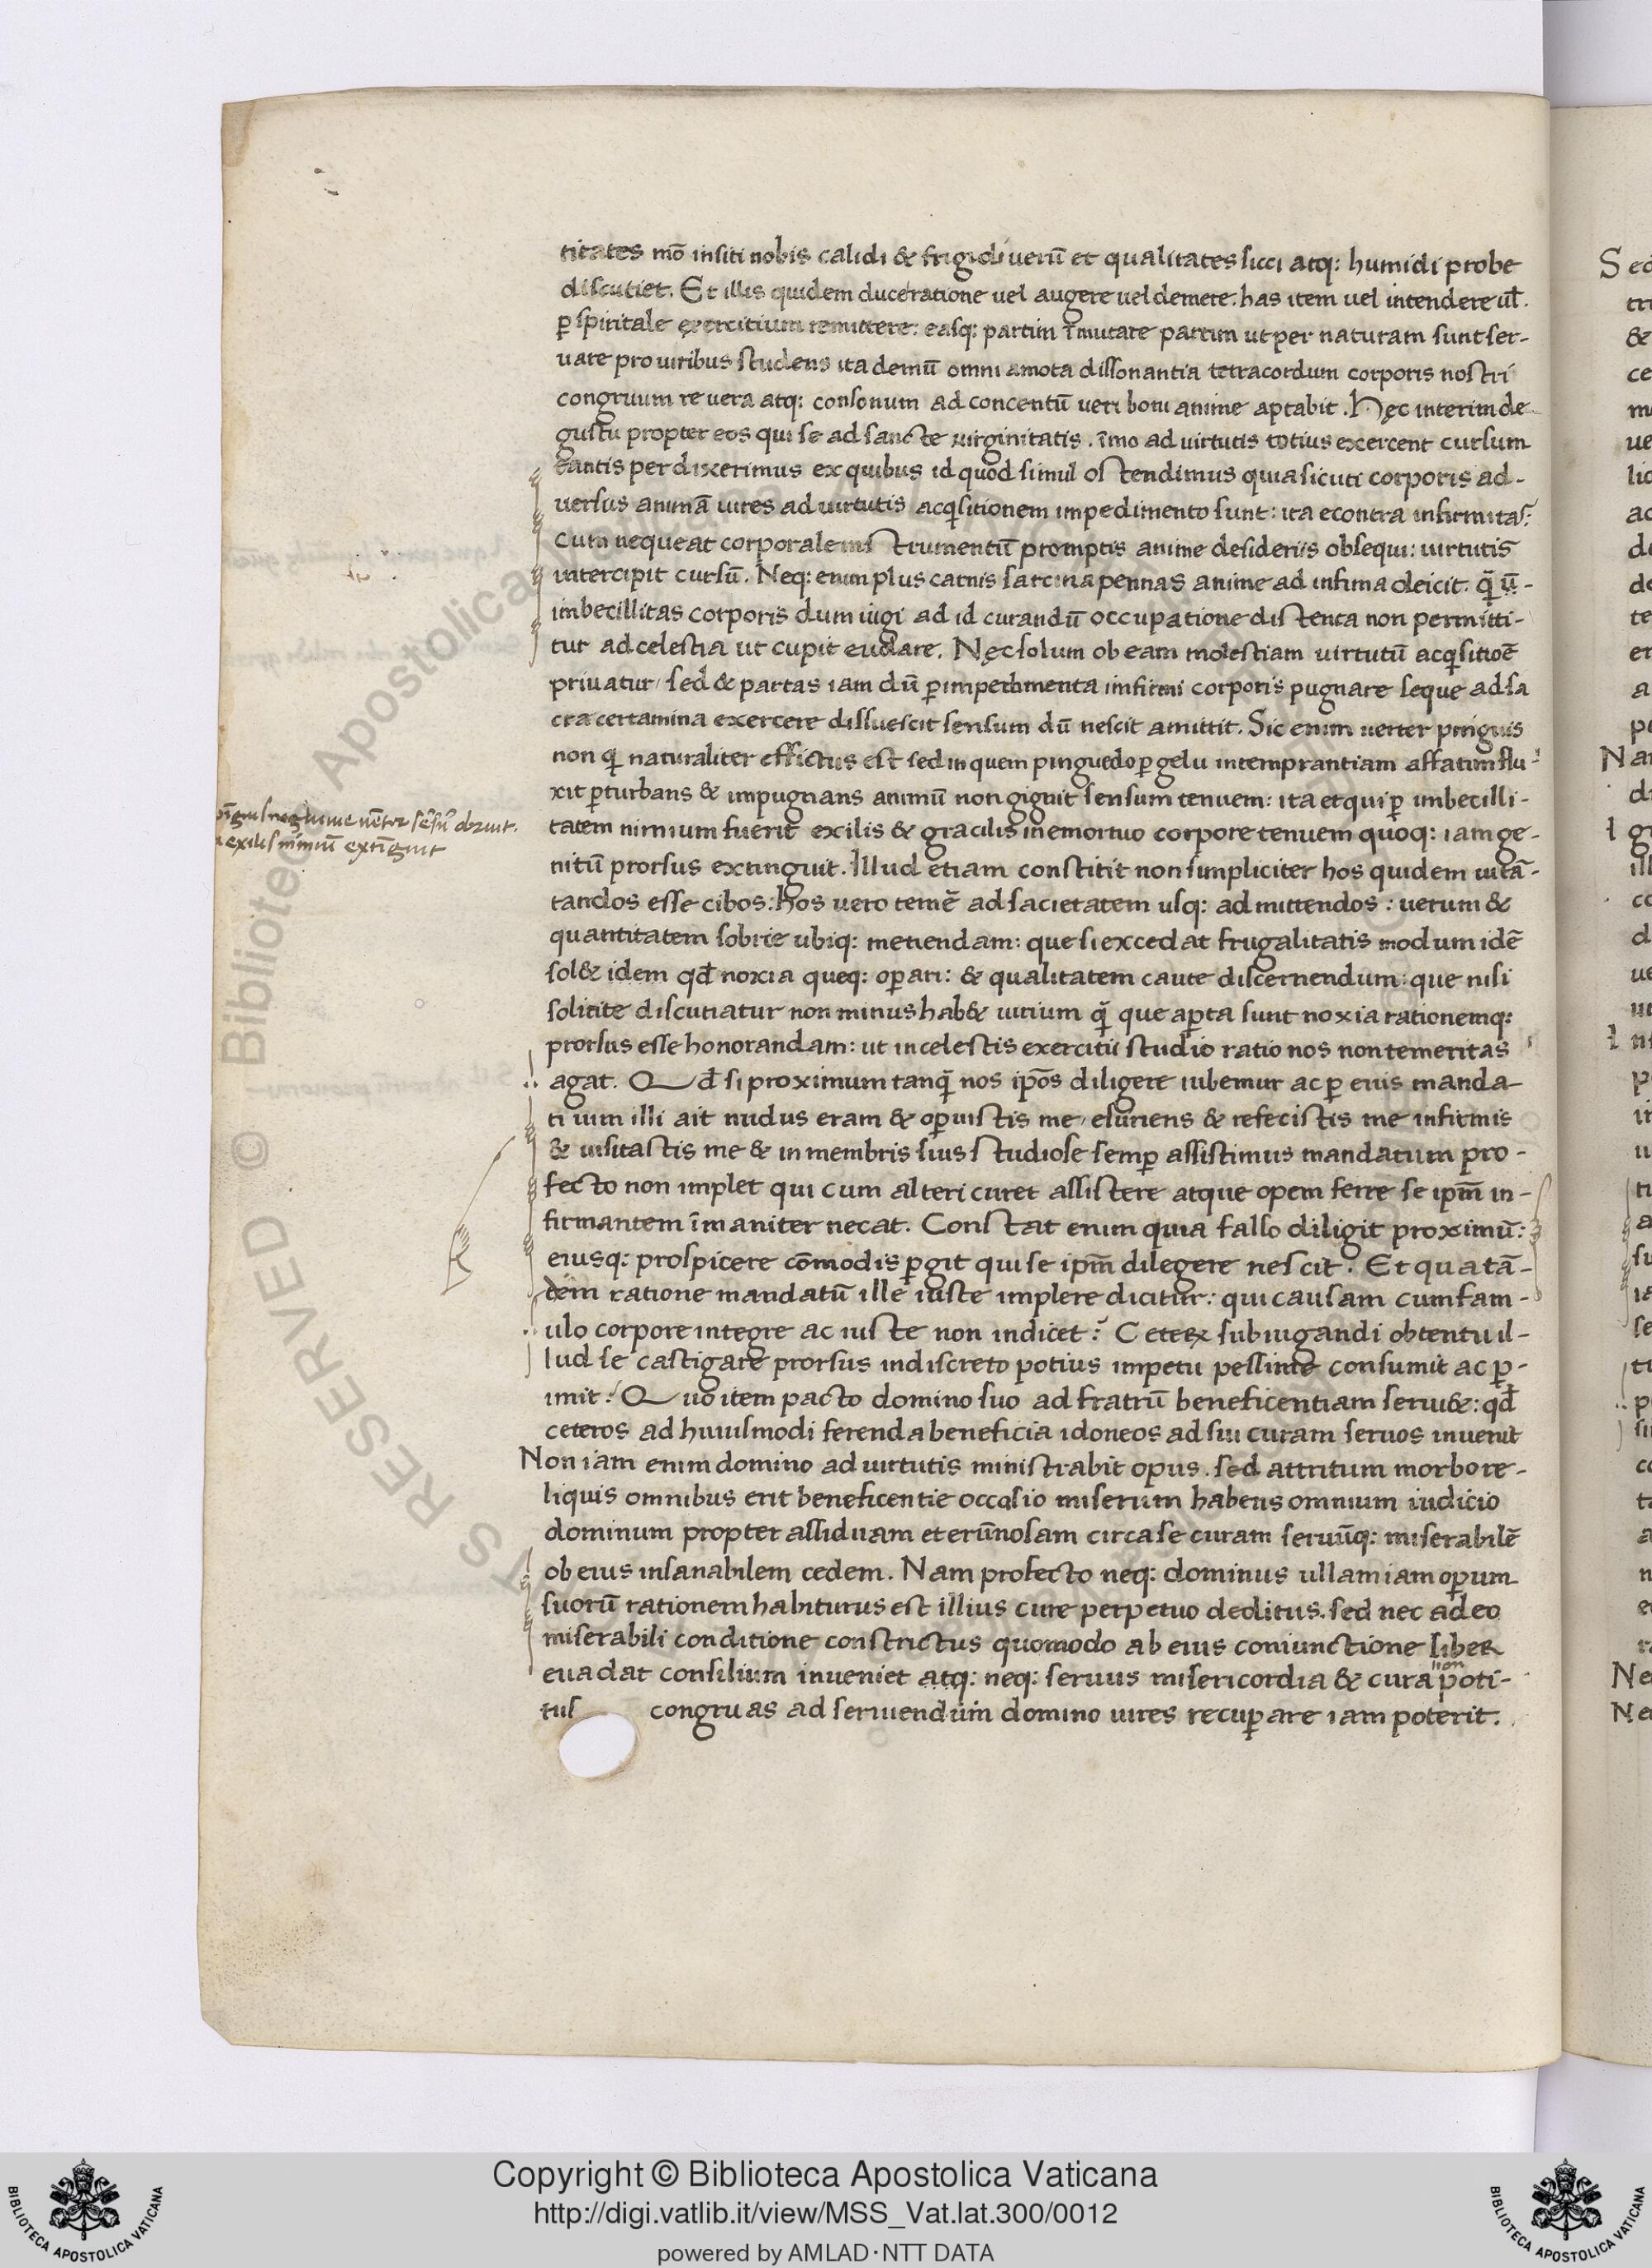 titates mō insiti nobis calidi & frigidi uerū et qualitates sicci atq: humidi probe
discutiet. Et illis quidem duce ratione uel augere uel demere: has item uel intendere ul̄.
ꝑ spiritale exercitium remittere: easq: partim īmutare partim ut per naturam sunt ser-
uare pro uiribus studens ita demū omni amota dissonantia tetracordum corporis nostri
congruum re uera atq: consonum ad concentū ueri boni anime aptabit. Hęc interim de
gustu propter eos qui se ad sancte uirginitatis. īmo ad uirtutis totius exercent cursum
tantis per dixerimus ex quibus id quod simul ostendimus quia sicuti corporis ad-
uersus animā uires ad uirtutis acq̧sitionem impedimento sunt: ita econtra infirmitas:
cum nequeat corporale instrumentū promptis anime desideriis obsequi: uirtutis
intercipit cursū. Neq: enim plus carnis sarcina pennas anime ad infima deicit. q̄ ū-
imbecillitas corporis dum iugi ad id curandū occupatione distenta non permitti-
tur ad celestia ut cupit euolare. Nec solum ob eam molestiam uirtutū acq̧sitiōe
priuatur/ sed & partas iam dū ꝑ impedimenta imfirmi corporis pugnare seque ad sa
cra certamina exercere dissuescit sensum dū nescit amittit. Sic enim uenter pinguis
non q̧ naturaliter effictus est sed in quem pinguedo ꝑ gelu intemprantiam affatim flu-
xit ꝑturbans & impugnans animū non gignit sensum tenuem: ita et qui ꝑ imbecilli-
tatem nimium fuerit exilis & gracilis in emortuo corpore tenuem quoq: iam ge-
pīguis neq̧ uenter sēsū
exilis nimiū extīguit
nitū prorsus extinguit. Illud etiam constitit non simpliciter hos quidem uitā-
tandos esse cibos: hos uero temē ad sacietatem usq: admittendos: uerum &
quantitatem sobrie ubiq: metiendam: que si excedat frugalitatis modum idē
sol& idem qd̄ noxia queq: oꝑari: & qualitatem caute discernendum: que nisi
solicite discutiatur non minus hab& uitium q̄ que aꝑta sunt noxia rationemq:
prorsus esse honorandam: ut in celestis exercitii studio ratio nos non temeritas
agat. Qd̄ si proximum tanq̄ nos ip̄os diligere iubemur ac ꝑ eius manda-
ti uim illi ait nudus eram & oꝑuistis me/ esuriens & refecistis me infirmis
& uisitastis me & in membris suis studiose semꝑ assistimus mandatum pro-
fecto non implet qui cum alteri curet assistere atque opem ferre se ip̄m in-
firmantem īmaniter necat. Constat enim quia falso diligit proximū:
eiusq: prospicere cōmodis ꝑgit qui se ip̄m dilegere nescit. Et qua tā-
dem ratione mandatū ille iuste implere dicitur: qui causam cum fam-
ulo corpore integre ac iuste non indicet? Ceteꝝ subiugandi obtentu il-
lud se castigare prorsus indiscreto potius impetu pessime consumit ac ꝑ-
imit? Quo item pacto domino suo ad fratrū beneficentiam seruı&: qd̄
ceteros ad huiusmodi ferenda beneficia idoneos ad sui curam seruos inuenit
Non iam enim domino ad uirtutis ministrabit opus. sed attritum morbo re-
liquis omnibus erit beneficentie occasio miserum habens omnium iudicio
dominum propter assiduam et erūnosam circa se curam seruūq: miserabilē
ob eius insanabilem cedem. Nam profecto neq: dominus ullam iam oꝑum
suorū rationem habiturus est illius cure perpetuo deditus. sed nec adeo
miserabili conditione constrictus quomodo ab eius coniunctione liber
euadat consilium inueniet atq: neq: seruus misericordia & cura non poti-
tus congruas ad seruiendum domino uires recuꝑare iam poterit.
Copyright © Biblioteca Apostolica Vaticana
http://digi.vatlib.it/view/MSS_Vat.lat.300/0012
powered by AMLAD·NTT DATA